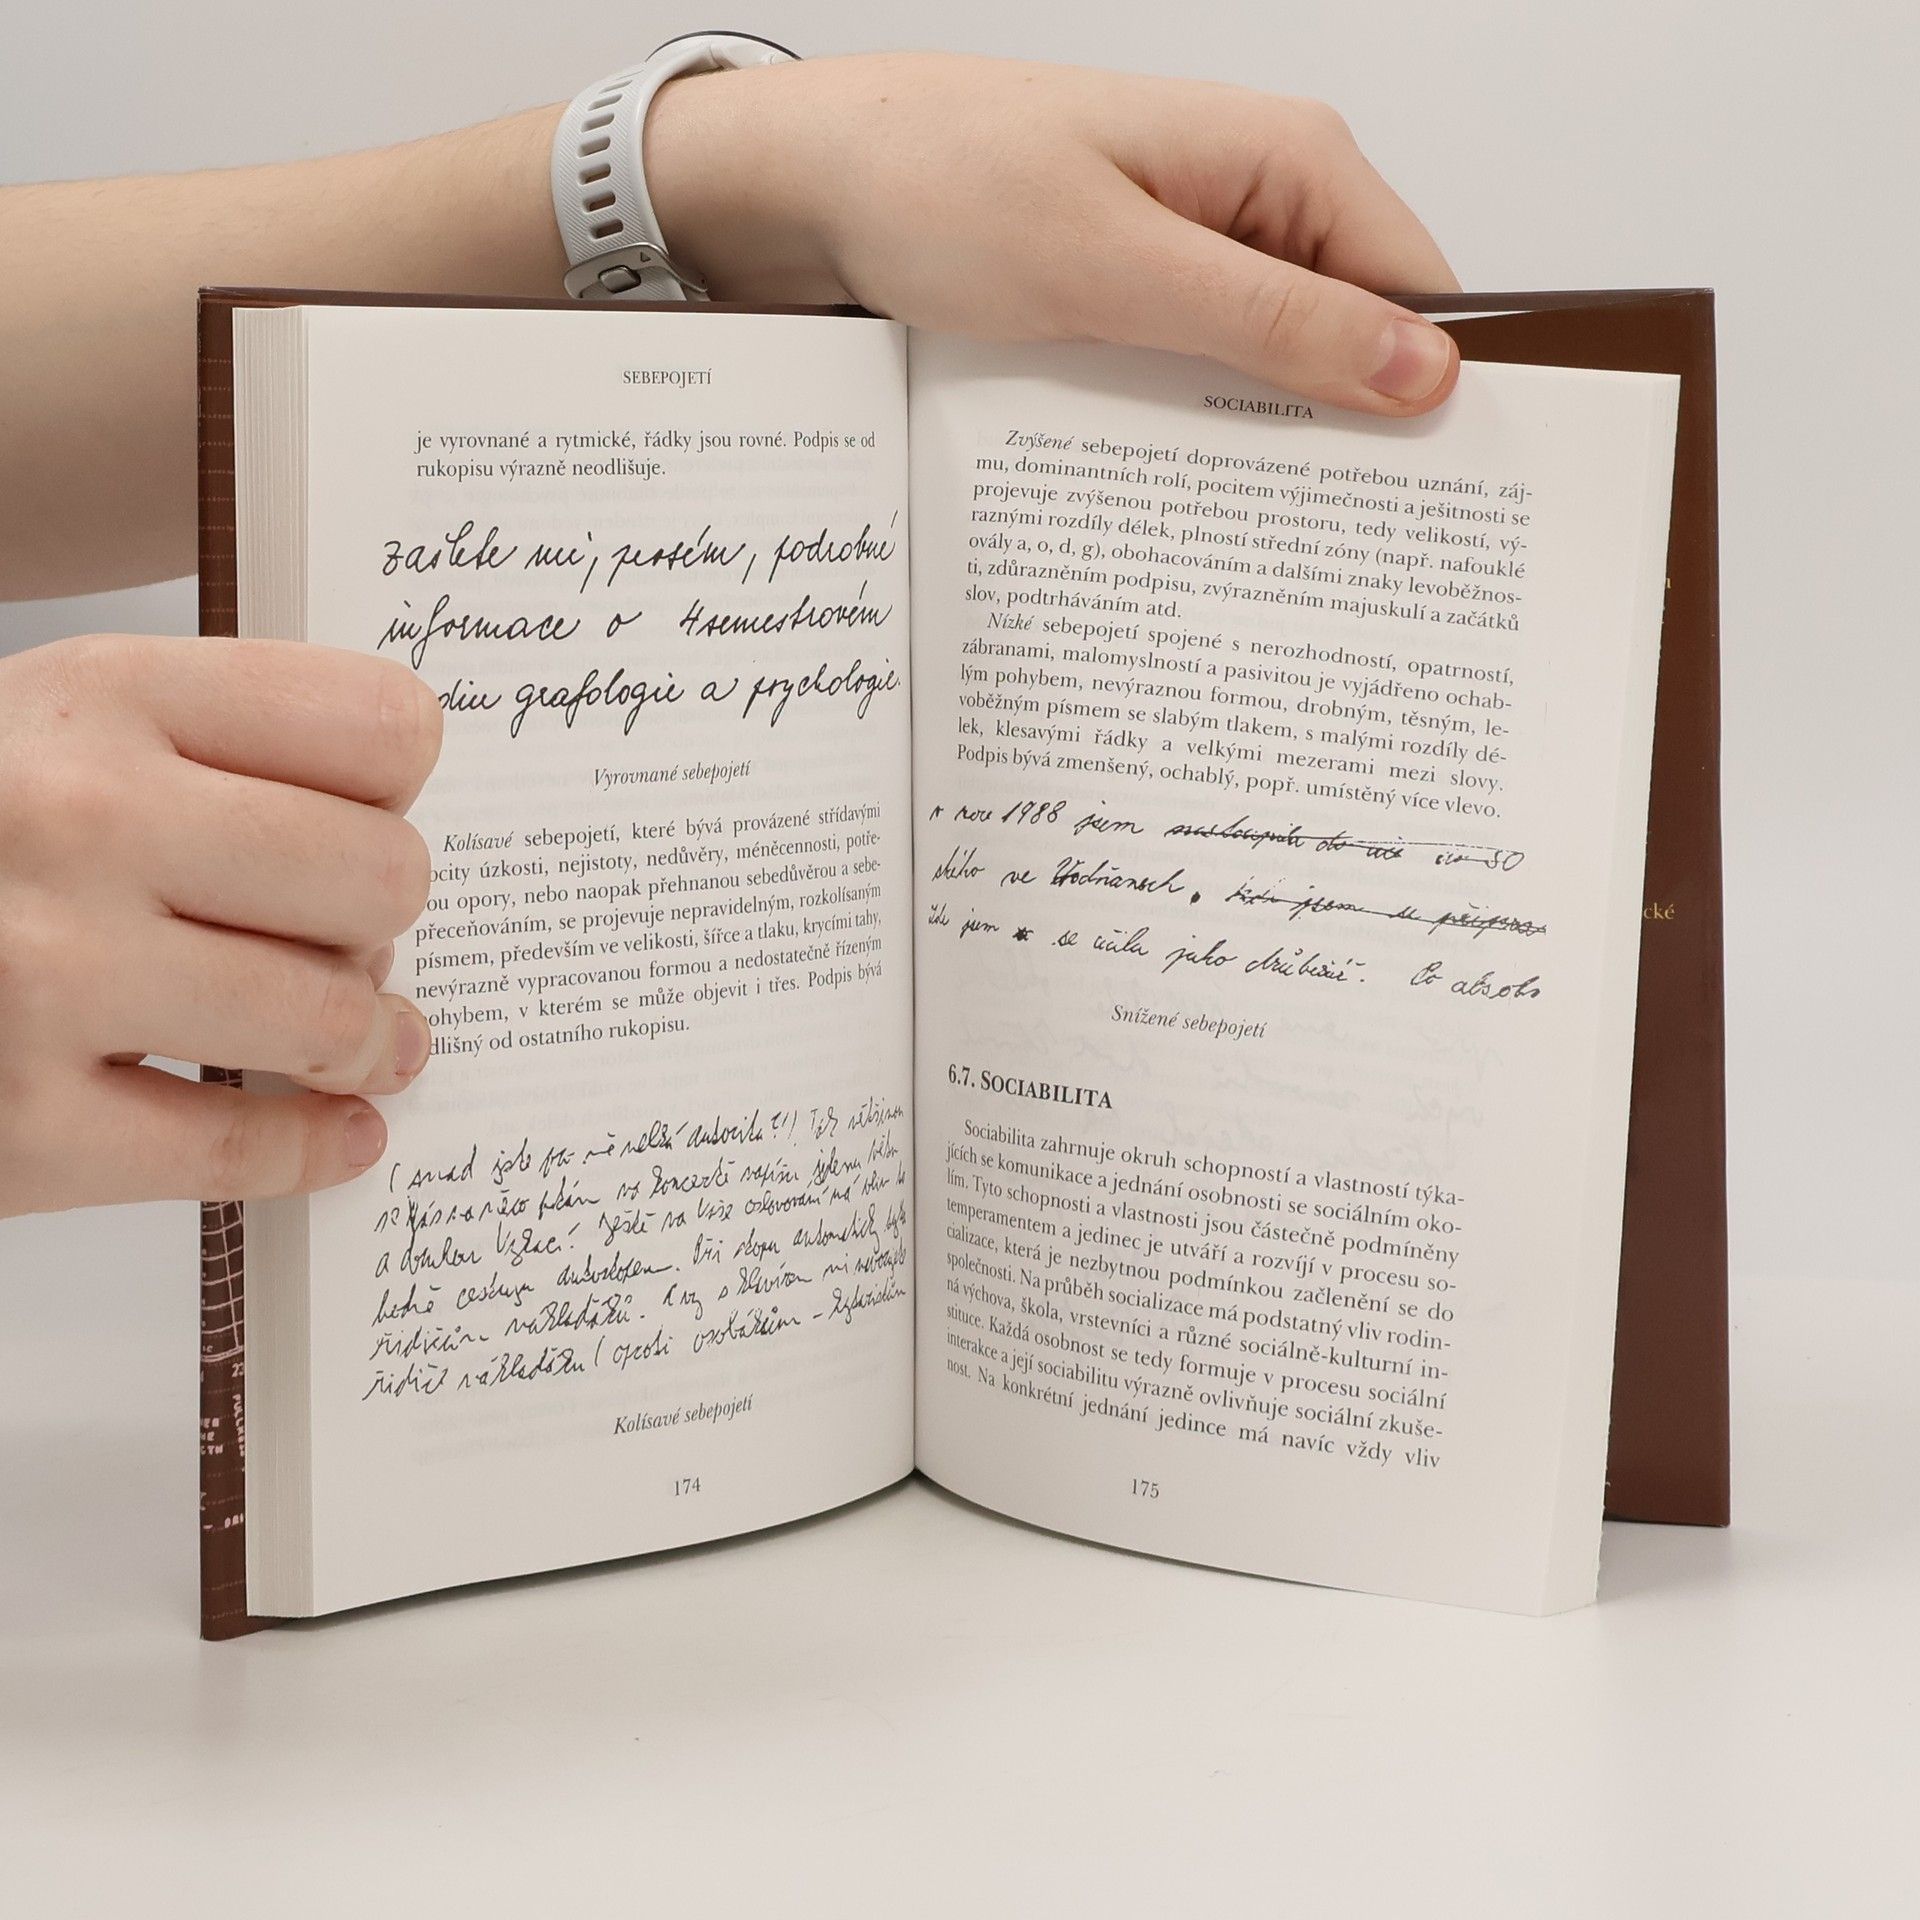 SEBEPOJETÍ
je vyrovnané a rytmické, řádky jsou rovné. Podpis se od
rukopisu výrazně neodlišuje.
zašlete mi, prosím, podrobné
informace o 4semestrovém
diu grafologie a psychologie.
Vyrovnané sebepojetí
Kolísavé sebepojetí, které bývá provázené střídavými
ocity úzkosti, nejistoty, nedůvěry, méněcennosti, potře-
ou opory, nebo naopak přehnanou sebedůvěrou a sebe-
přeceňováním, se projevuje nepravidelným, rozkolísaným
písmem, především ve velikosti, šířce a tlaku, krycími tahy,
nevýrazně vypracovanou formou a nedostatečně řízeným
ohybem, v kterém se může objevit i třes. Podpis bývá
dlišný od ostatního rukopisu.
( snad jste pro mě velká autorita?!) Tak většinou
se Vás na něco ptám
a druhou
řidičům náklaďáků.
řidič náklaďáku ( oproti osobákům -
Kolísavé sebepojetí
174
SOCIABILITA
Zvýšené sebepojetí doprovázené potřebou uznání, záj-
mu, dominantních rolí, pocitem výjimečnosti a ješitnosti se
projevuje zvýšenou potřebou prostoru, tedy velikostí, vý-
raznými rozdíly délek, plností střední zóny (např. nafouklé
ovály a, o, d, g), obohacováním a dalšími znaky levoběžnos-
ti, zdůrazněním podpisu, zvýrazněním majuskulí a začátků
slov, podtrháváním atd.
Nízké sebepojetí spojené s nerozhodností, opatrností,
zábranami, malomyslností a pasivitou je vyjádřeno ochab-
lým pohybem, nevýraznou formou, drobným, těsným, le-
voběžným písmem se slabým tlakem, s malými rozdíly dé-
lek, klesavými řádky a velkými mezerami mezi slovy.
Podpis bývá zmenšený, ochablý, popř. umístěný více vlevo.
v roce 1988 jsem nastoupila do
ského ve Vodňanech, kde jsem se připra
kde jsem se učila jako drůbežář. Co absolv
Snížené sebepojetí
6.7. SOCIABILITA
Sociabilita zahrnuje okruh schopností a vlastností týka-
jících se komunikace a jednání osobnosti se sociálním oko-
lím. Tyto schopnosti a vlastnosti jsou částečně podmíněny
temperamentem a jedinec je utváří a rozvíjí v procesu so-
cializace, která je nezbytnou podmínkou začlenění se do
společnosti. Na průběh socializace má podstatný vliv rodin-
ná výchova, škola, vrstevníci a různé sociálně-kulturní in-
stituce. Každá osobnost se tedy formuje v procesu sociální
interakce a její sociabilitu výrazně ovlivňuje sociální zkuše-
nost. Na konkrétní jednání jedince má navíc vždy vliv
175
cké